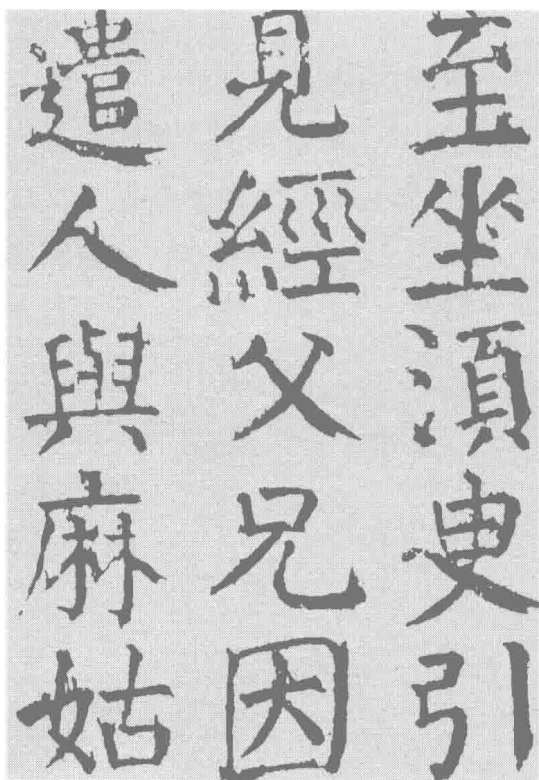 至坐須臾引
見經父兄因
遣人與麻姑